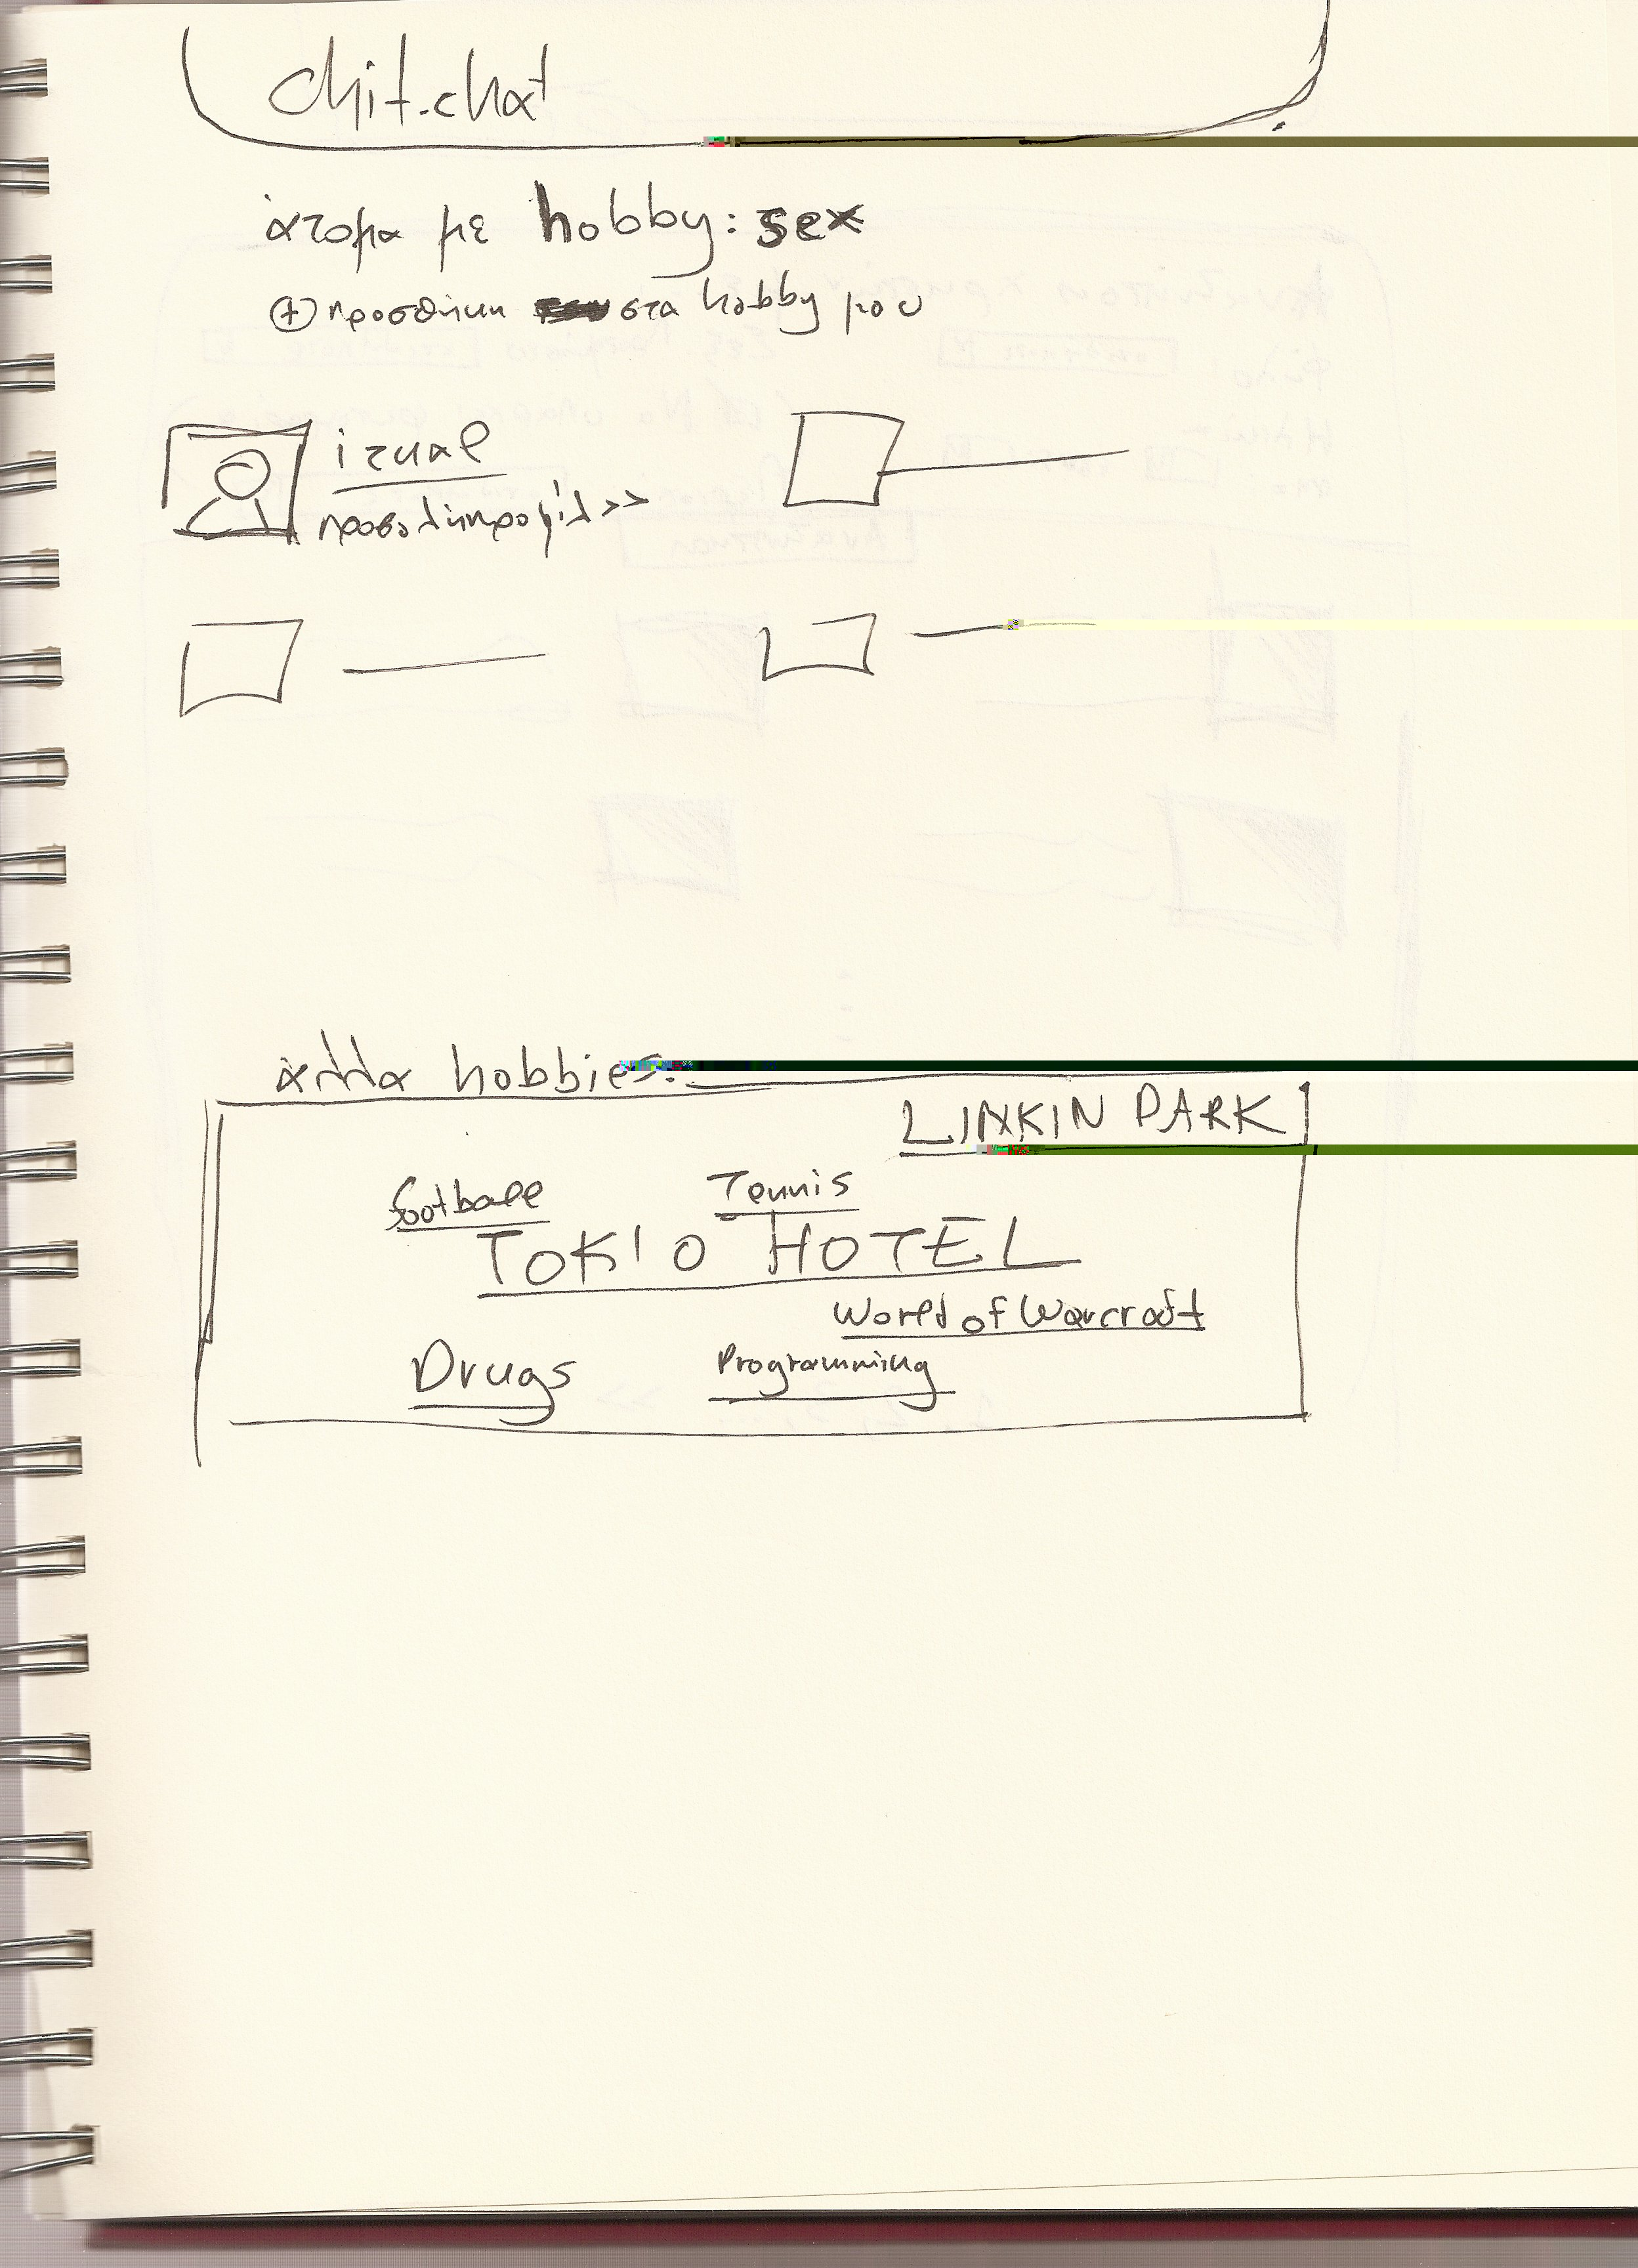 chit.chat
άτομα με hobby: sex
+ προσθήκη στα hobby μου
izual
προβολή προφίλ >>
άλλα hobbies:
LINKIN PARK
football Tennis
TOKIO HOTEL
World of Warcraft
Drugs Programming